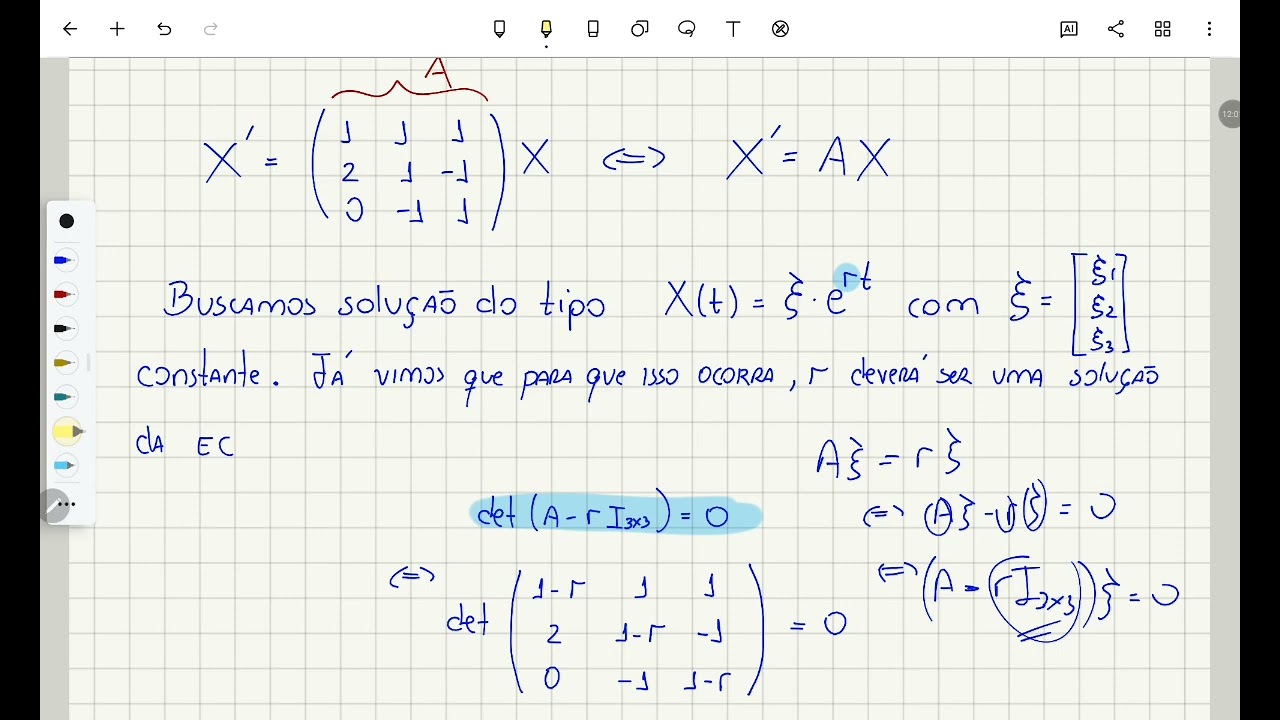 A
X' = ( 1 1 1 ) X ⟺ X' = AX
2 1 -1
0 -1 1
BUSCAMOS SOLUÇÃO do tipo X(t) = ξ · e^{rt} com ξ = [ξ1
ξ2
ξ3]
constante. JÁ VIMOS que PARA que ISSO OCORRA, r deverá SER UMA SOLUÇÃO
dA EC
Aξ = rξ
det (A - r I3x3) = 0
⟺ (A)ξ - r(ξ) = 0
⟺ (A - r I3x3) ξ = 0
⟺ det ( 1-r 1 1 ) = 0
2 1-r -1
0 -1 1-r
T
AI
12:0